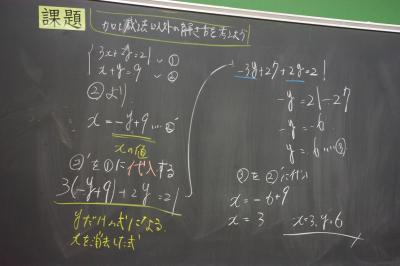 課題
加減法以外の解き方を考えよう
3x+2y=21 …①
x+y=9 …②
②より
x=-y+9 …②'
xの値
②'を①に代入する
3(-y+9)+2y=21
yだけの式になる
xを消去した式
-3y+27+2y=21
-y=21-27
-y=-6
y=6 …③
③を②'に代入
x=-6+9
x=3
x=3, y=6